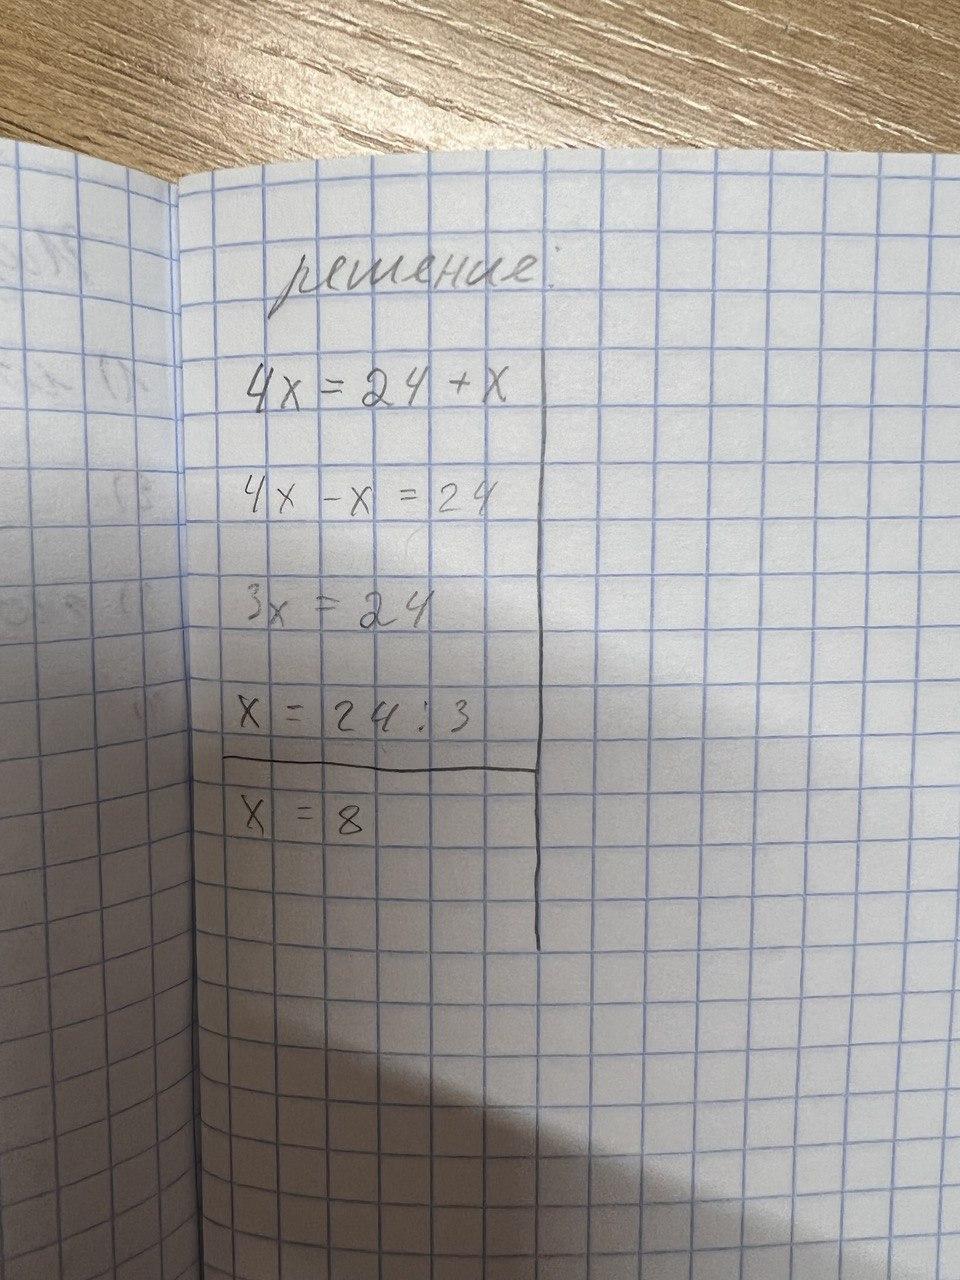 решение:
4x = 24 + x
4x - x = 24
3x = 24
x = 24 : 3
x = 8